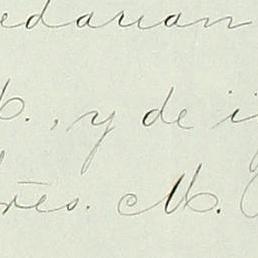 edarian
, y de i
res. M.